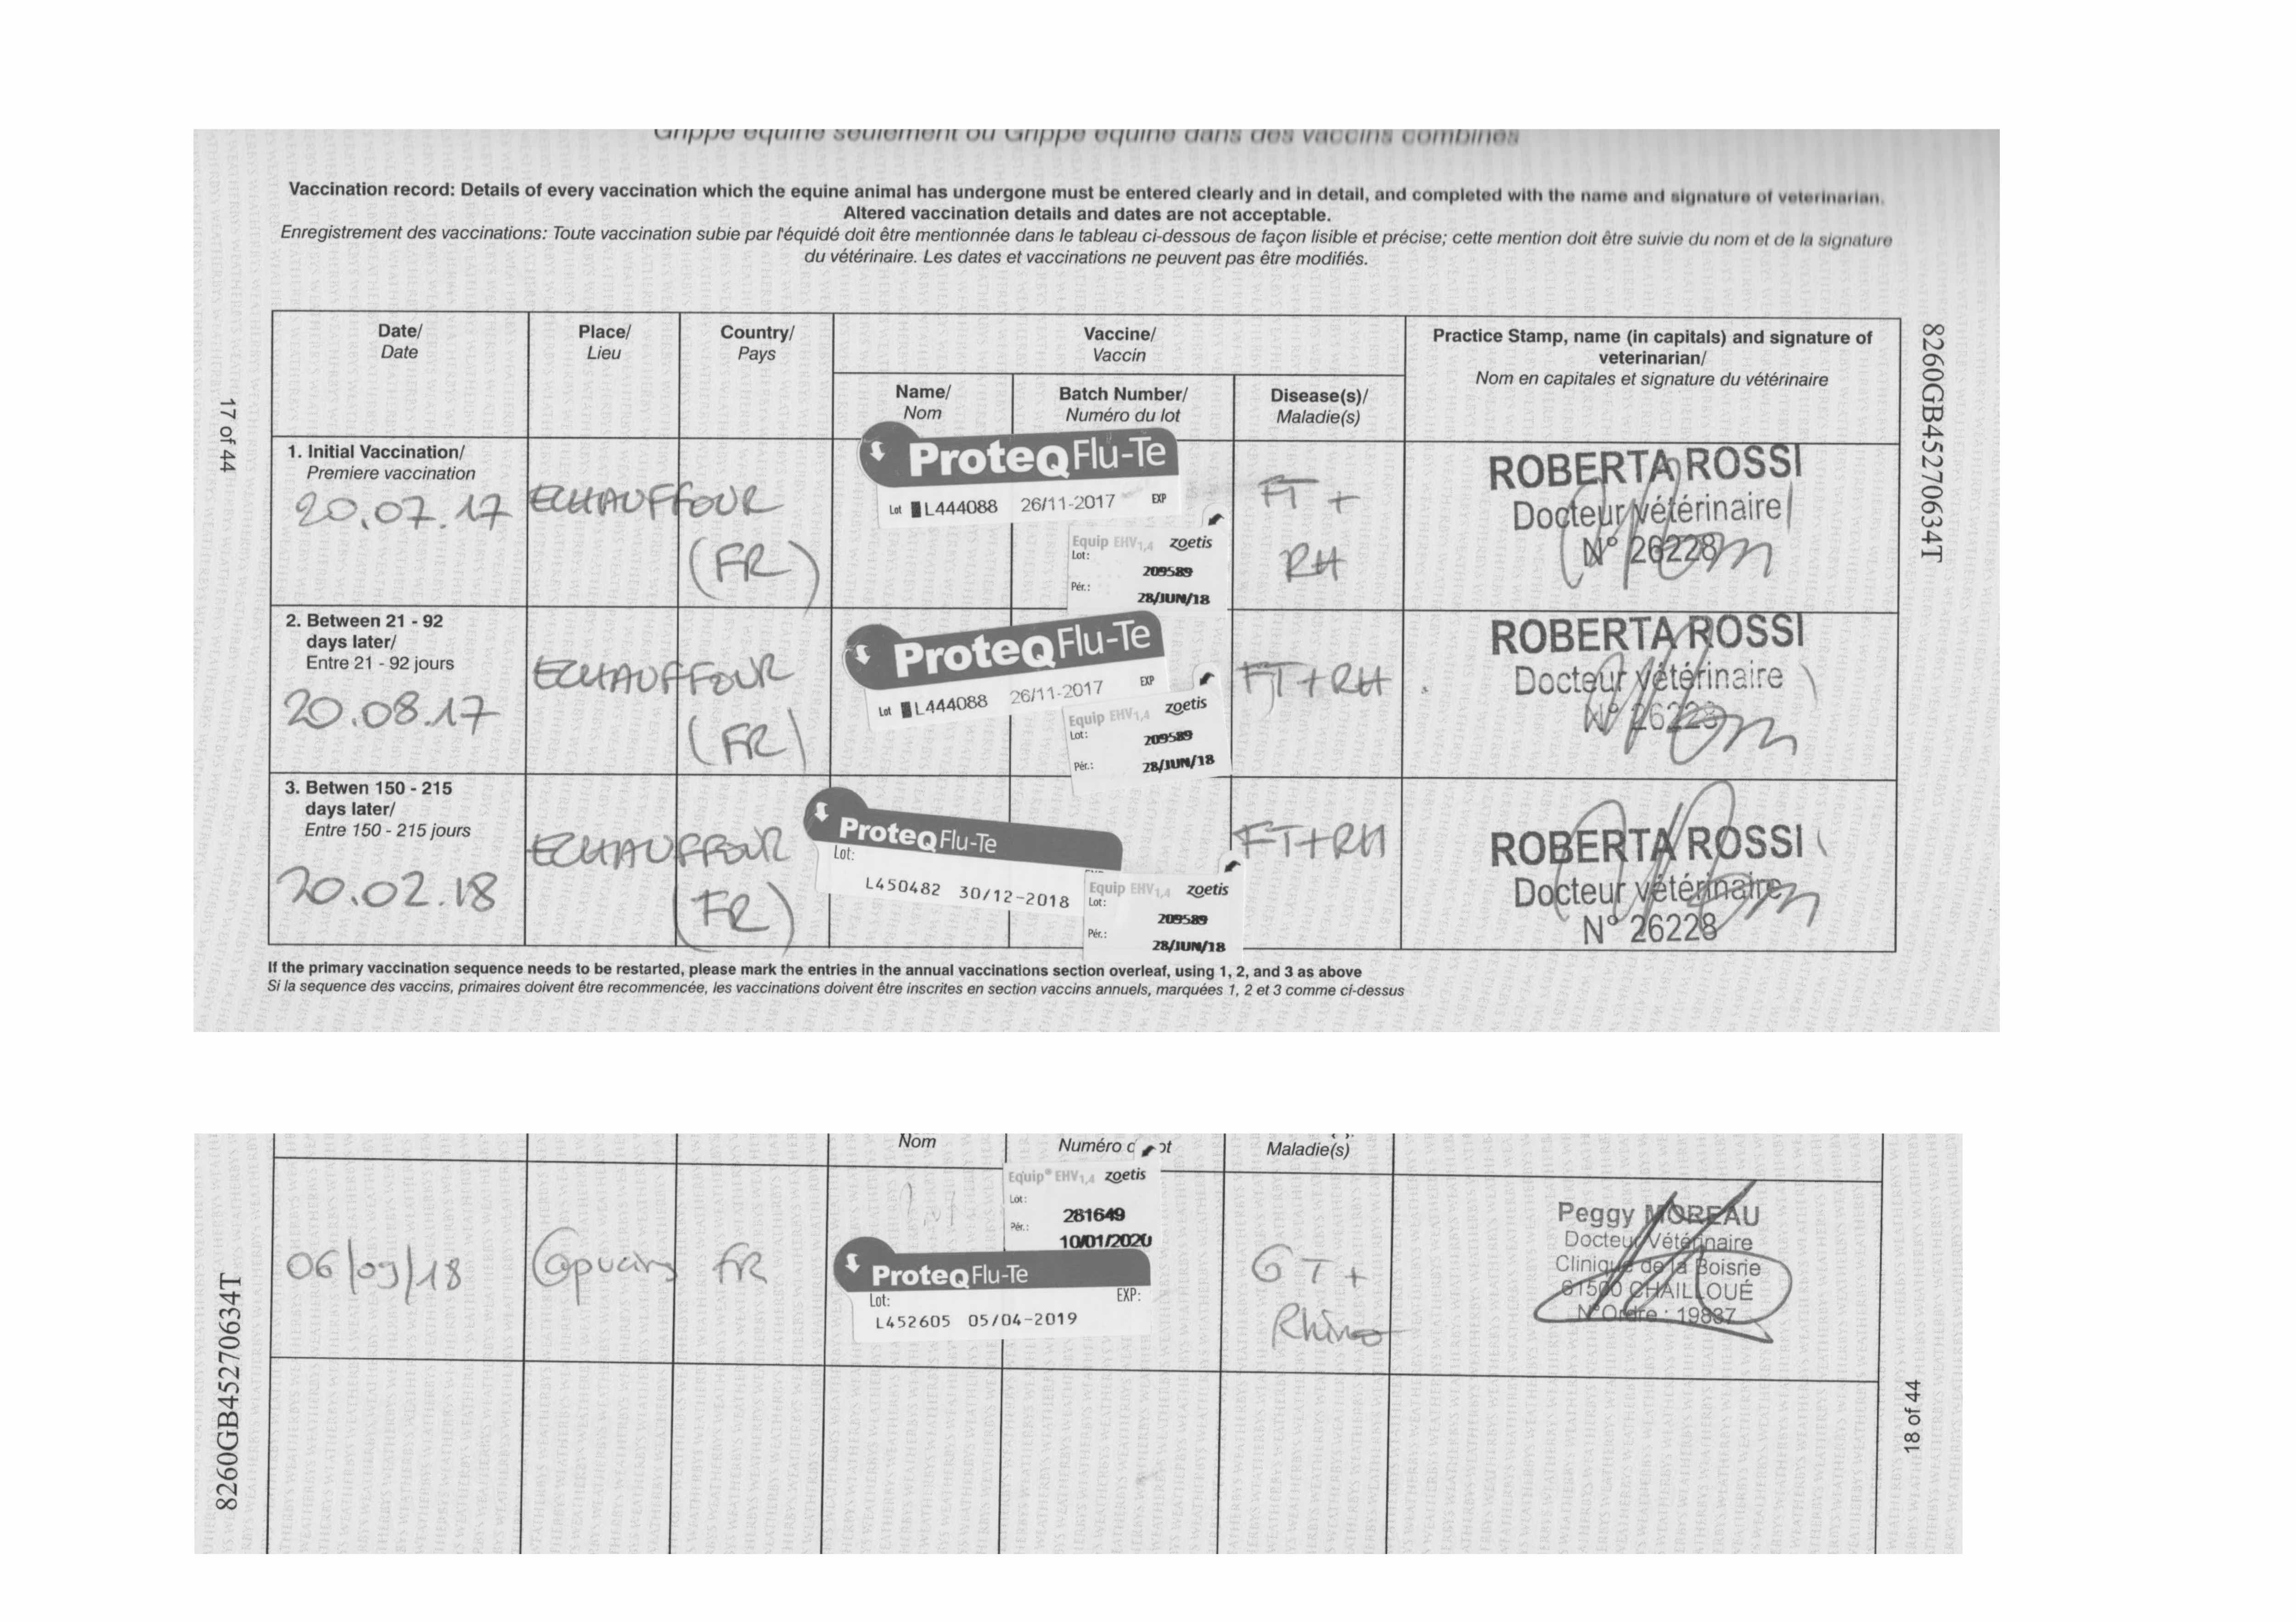 Grippe équine seulement ou Grippe équine dans des vaccins combinés
Vaccination record: Details of every vaccination which the equine animal has undergone must be entered clearly and in detail, and completed with the name and signature of veterinarian.
Altered vaccination details and dates are not acceptable.
Enregistrement des vaccinations: Toute vaccination subie par l'équidé doit être mentionnée dans le tableau ci-dessous de façon lisible et précise; cette mention doit être suivie du nom et de la signature
du vétérinaire. Les dates et vaccinations ne peuvent pas être modifiés.
17 of 44
8260GB45270634T
Date/
Date
Place/
Lieu
Country/
Pays
Vaccine/
Vaccin
Name/
Nom
Batch Number/
Numéro du lot
Disease(s)/
Maladie(s)
Practice Stamp, name (in capitals) and signature of
veterinarian/
Nom en capitales et signature du vétérinaire
1. Initial Vaccination/
Premiere vaccination
20.07.17
ECHAUFFOUR
(FR)
ProteqFlu-Te
Lot L444088 26/11-2017 EXP
Equip EHV1,4 zoetis
Lot:
209589
Pér.:
28/JUN/18
FT +
RH
ROBERTA ROSSI
Docteur vétérinaire
N° 26228
2. Between 21 - 92
days later/
Entre 21 - 92 jours
20.08.17
ECHAUFFOUR
(FR)
ProteqFlu-Te
Lot L444088 26/11-2017 EXP
Equip EHV1,4 zoetis
Lot:
209589
Pér.:
28/JUN/18
FT+RH
ROBERTA ROSSI
Docteur vétérinaire
N° 26228
3. Betwen 150 - 215
days later/
Entre 150 - 215 jours
20.02.18
ECHAUFFOUR
(FR)
ProteqFlu-Te
Lot:
L450482 30/12-2018
Equip EHV1,4 zoetis
Lot:
209589
Pér.:
28/JUN/18
FT+RH
ROBERTA ROSSI
Docteur vétérinaire
N° 26228
If the primary vaccination sequence needs to be restarted, please mark the entries in the annual vaccinations section overleaf, using 1, 2, and 3 as above
Si la sequence des vaccins, primaires doivent être recommencée, les vaccinations doivent être inscrites en section vaccins annuels, marquées 1, 2 et 3 comme ci-dessus
8260GB45270634T
18 of 44
Nom
Numéro d ot
Maladie(s)
06/09/18
Capucins
FR
Equip® EHV1,4 zoetis
Lot:
281649
Pér.:
10/01/2020
ProteqFlu-Te
Lot: EXP:
L452605 05/04-2019
GT +
Rhino
Peggy MOREAU
Docteur Vétérinaire
Clinique de la Boisrie
61500 CHAILLOUÉ
N°Ordre : 19837